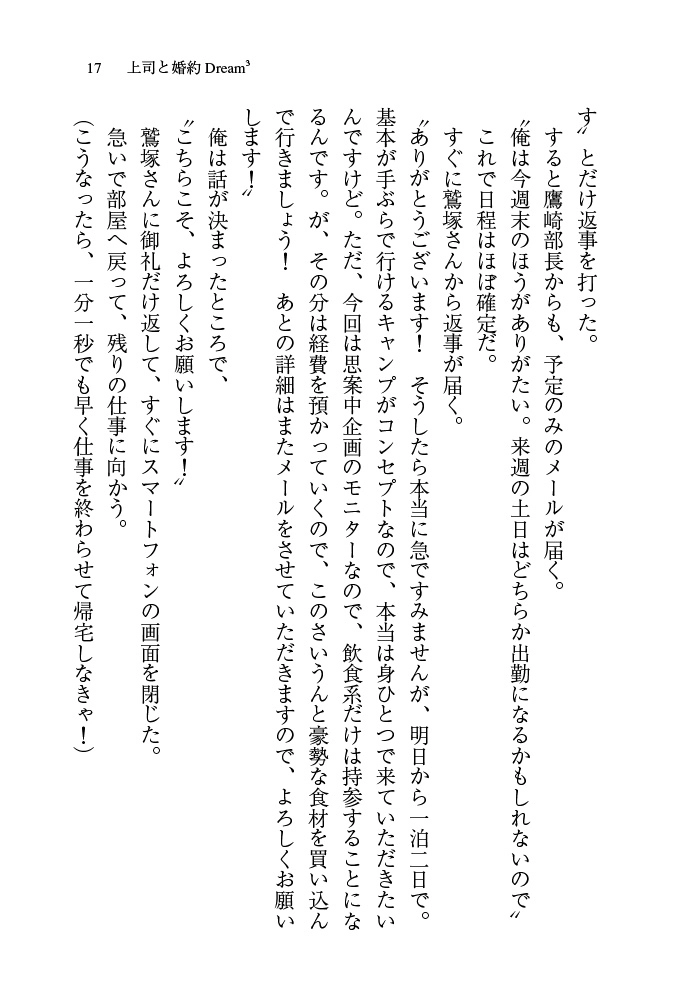 17　上司と婚約 Dream³
す〟とだけ返事を打った。
　すると鷹崎部長からも、予定のみのメールが届く。
〝俺は今週末のほうがありがたい。来週の土日はどちらか出勤になるかもしれないので〟
　これで日程はほぼ確定だ。
　すぐに鷲塚さんから返事が届く。
〝ありがとうございます！　そうしたら本当に急ですみませんが、明日から一泊二日で。
基本が手ぶらで行けるキャンプがコンセプトなので、本当は身ひとつで来ていただきたい
んですけど。ただ、今回は思案中企画のモニターなので、飲食系だけは持参することにな
るんです。が、その分は経費を預かっていくので、このさいうんと豪勢な食材を買い込ん
で行きましょう！　あとの詳細はまたメールをさせていただきますので、よろしくお願い
します！〟
　俺は話が決まったところで、
〝こちらこそ、よろしくお願いします！〟
　鷲塚さんに御礼だけ返して、すぐにスマートフォンの画面を閉じた。
　急いで部屋へ戻って、残りの仕事に向かう。
（こうなったら、一分一秒でも早く仕事を終わらせて帰宅しなきゃ！）